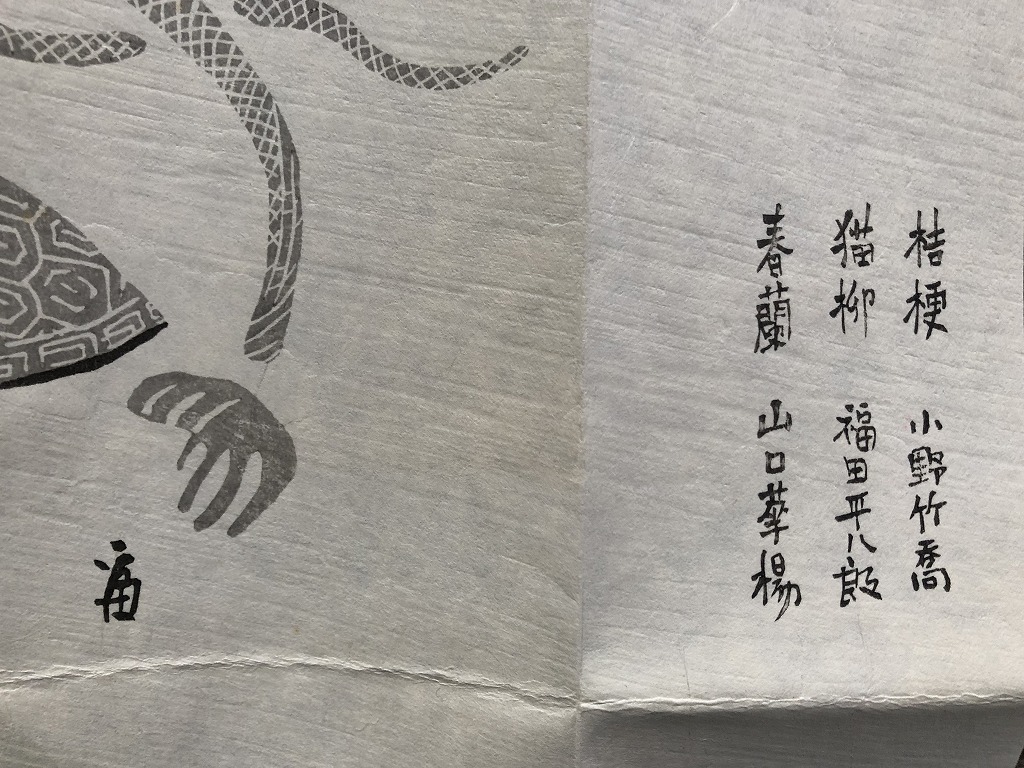 桔梗 小野竹喬
猫柳 福田平八郎
春蘭 山口華楊